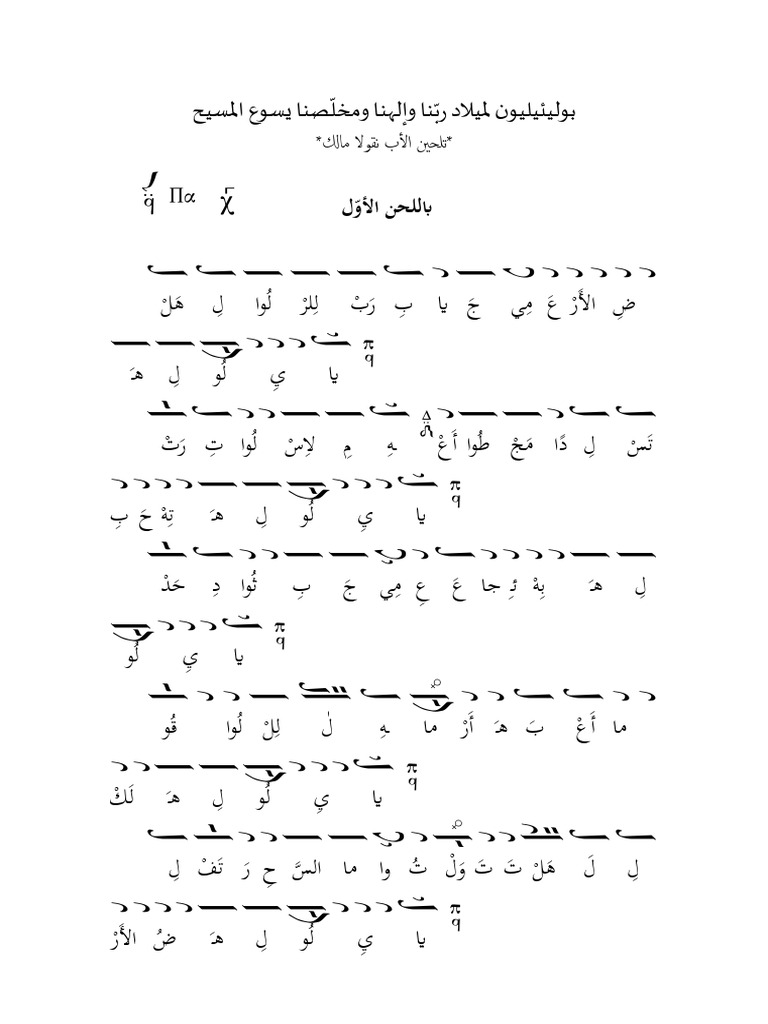 بوليئيليون لميلاد ربّنا وإلهنا ومخلّصنا يسوع المسيح
*تلحين الأب نقولا مالك*
باللحن الأوّل
Πα
هَلْ لِ لُوا لِلرْ رَبْ بِ يا جَ مِي عَ الأَرْ ضِ
هَـ لِ لُو يِ يا
رَتْ تِ لُوا لاِسْ مِ ـهِ أَعْ طُوا مَجْ دًا لِ تَسْ
بِ حَ تِهْ هَـ لِ لُو يِ يا
حَدْ دِ ثُوا بِ جَ مِي عِ عَ جا ئِ بِهْ هَـ لِ
لُو يِ يا
قُو لُوا لِلْ لٰ ـهِ ما أَرْ هَـ بَ أَعْ ما
لَكْ هَـ لِ لُو يِ يا
لِ تَفْ رَ حِ السَّ ما وا تُ وَلْ تَ تَ هَلْ لَ لِ
الأَرْ ضُ هَـ لِ لُو يِ يا